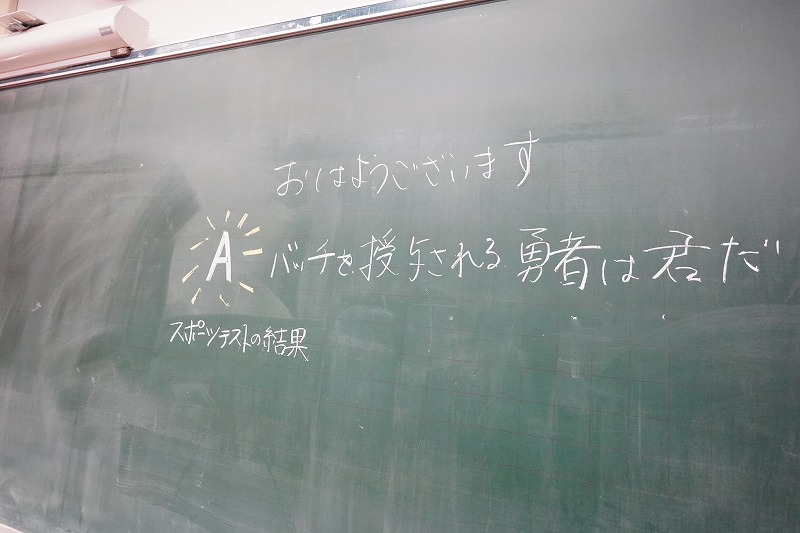 おはようございます
Aバッチを授与される勇者は君だ
スポーツテストの結果